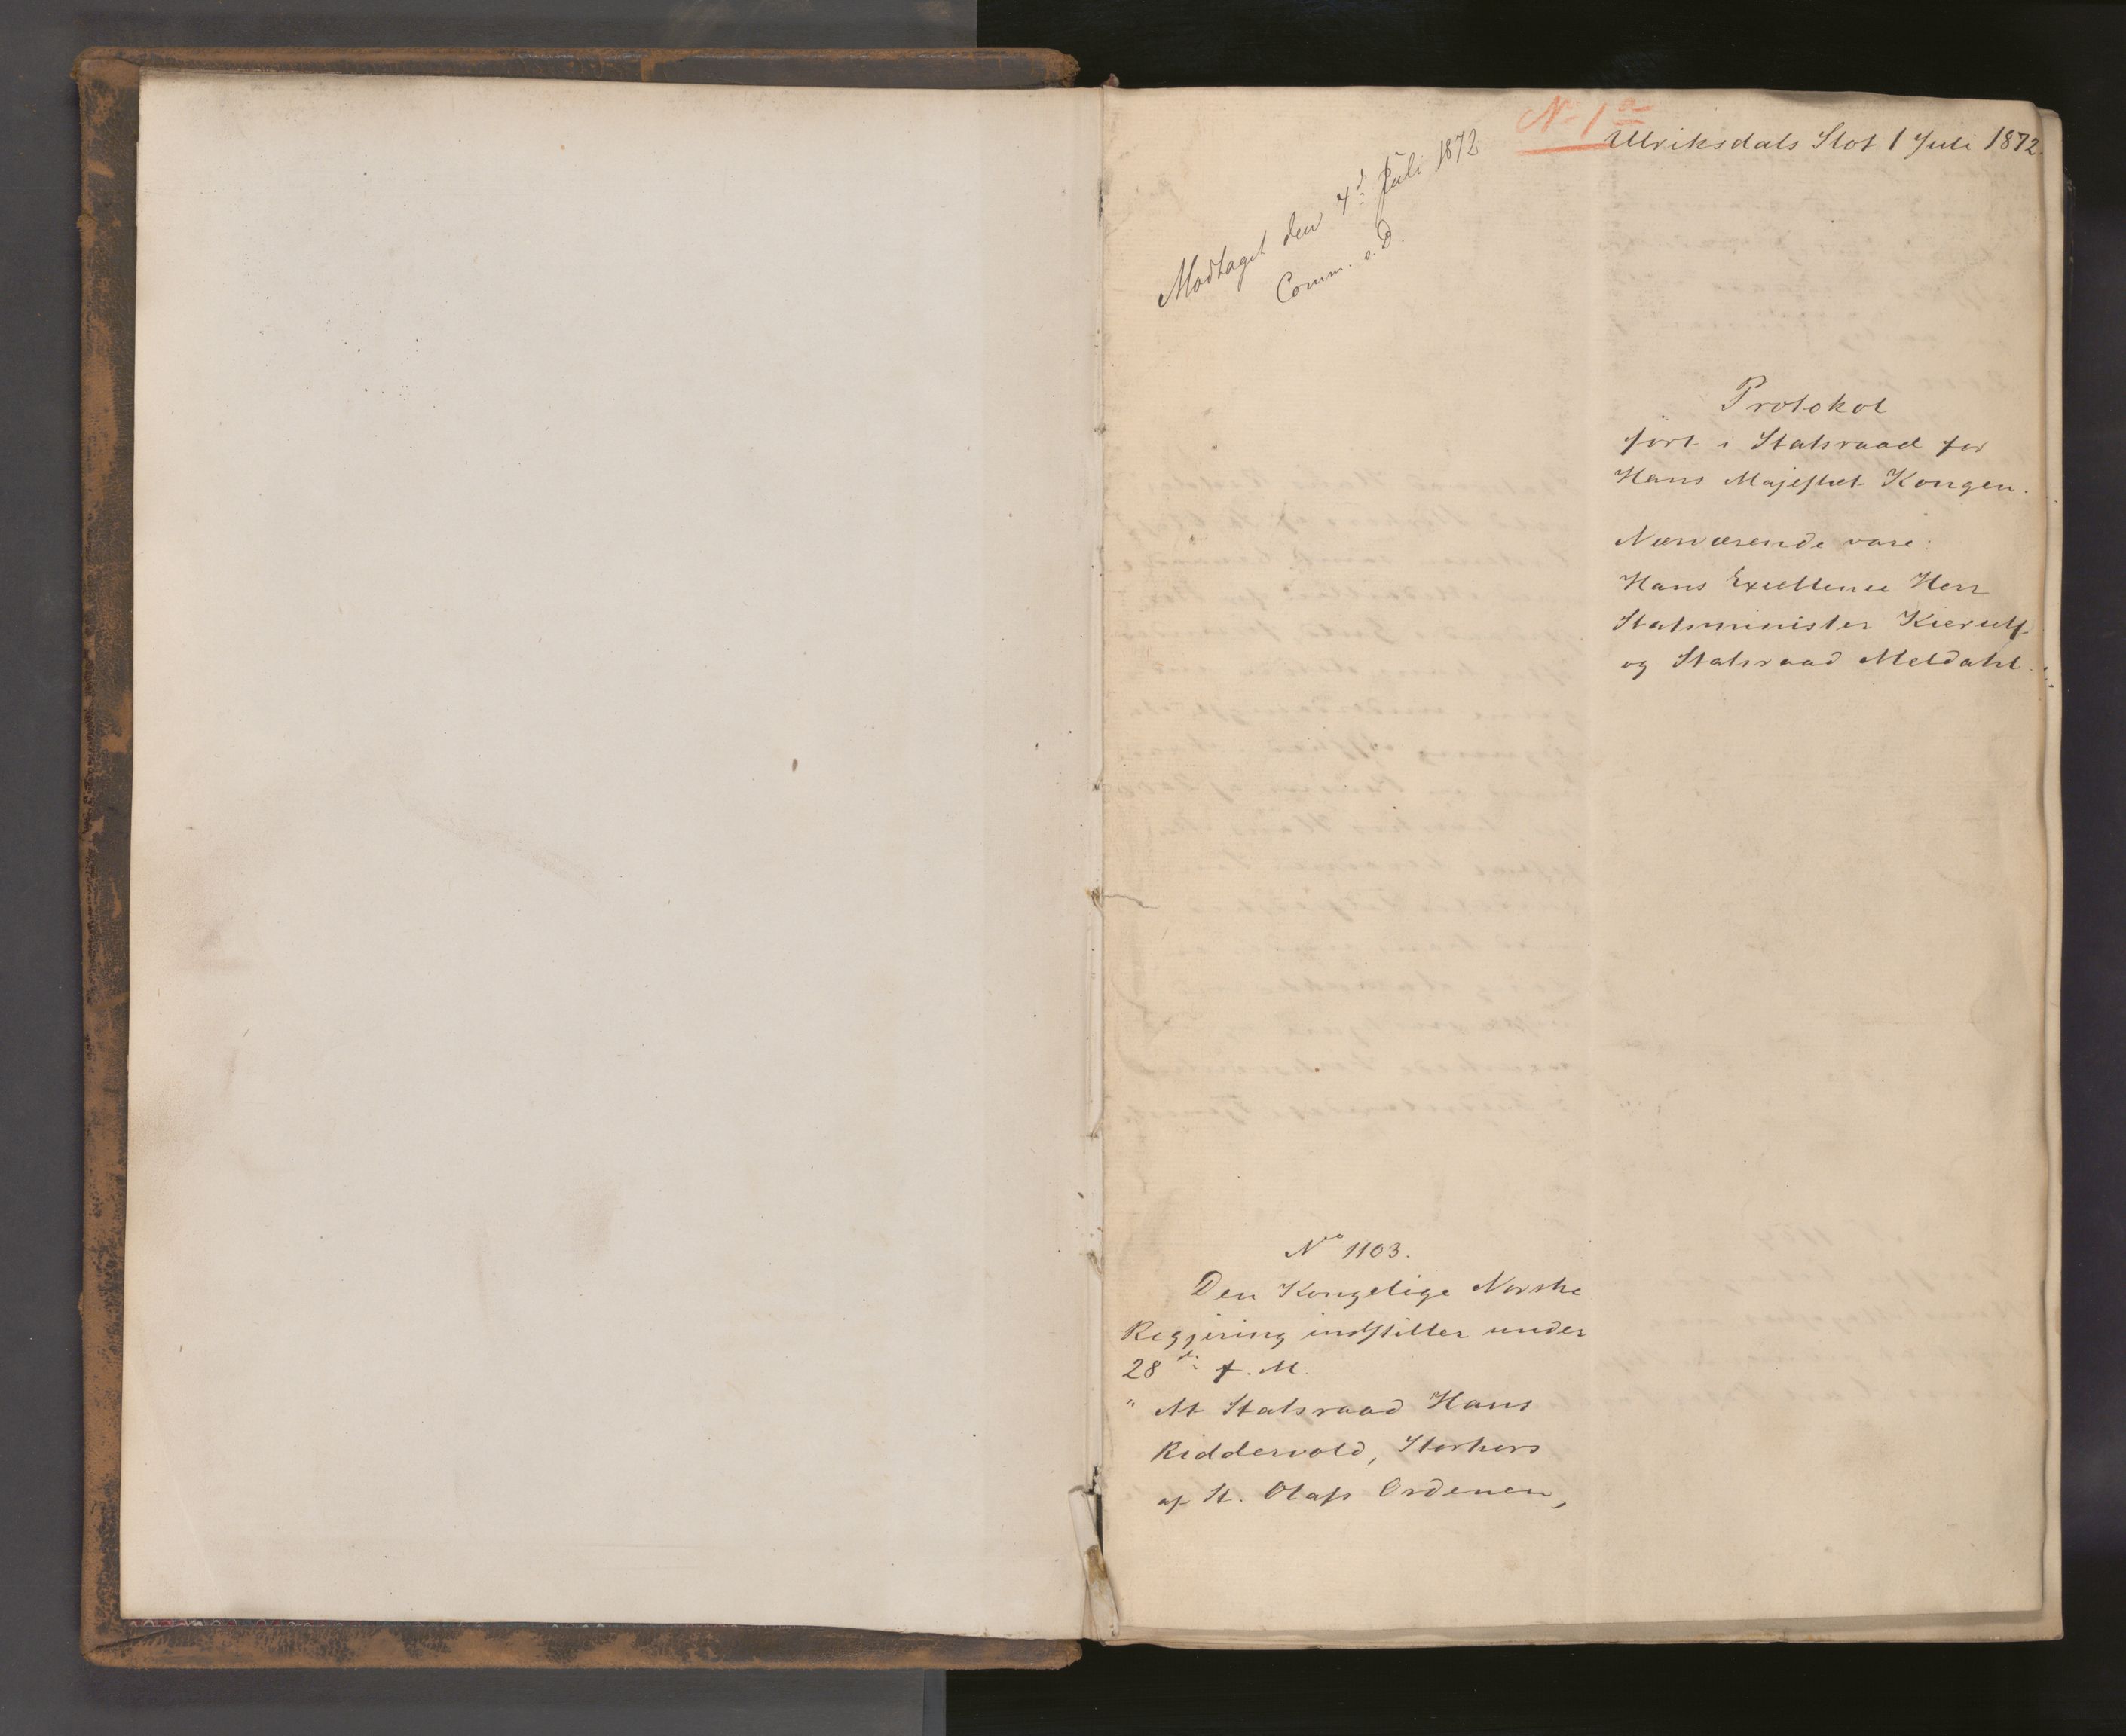 No 1a
Ulriksdals Slot 1 Juli 1872.
Modtaget den 4d Juli 1872
Comm. s. D.
Protokol
ført i Statsraad for
Hans Majestæt Kongen.
Nærværende vare:
Hans Excellence Herr
Statsminister Kierulf
og Statsraad Meldahl.
No 1103.
Den Kongelige Norske
Regjering indstiller under
28de f. M.
" At Statsraad Hans
Riddervold, Storkors
af St. Olafs Ordenen,